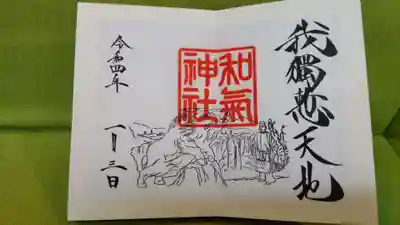 我獨慙天地
和氣
神社
令和四年
一月三日